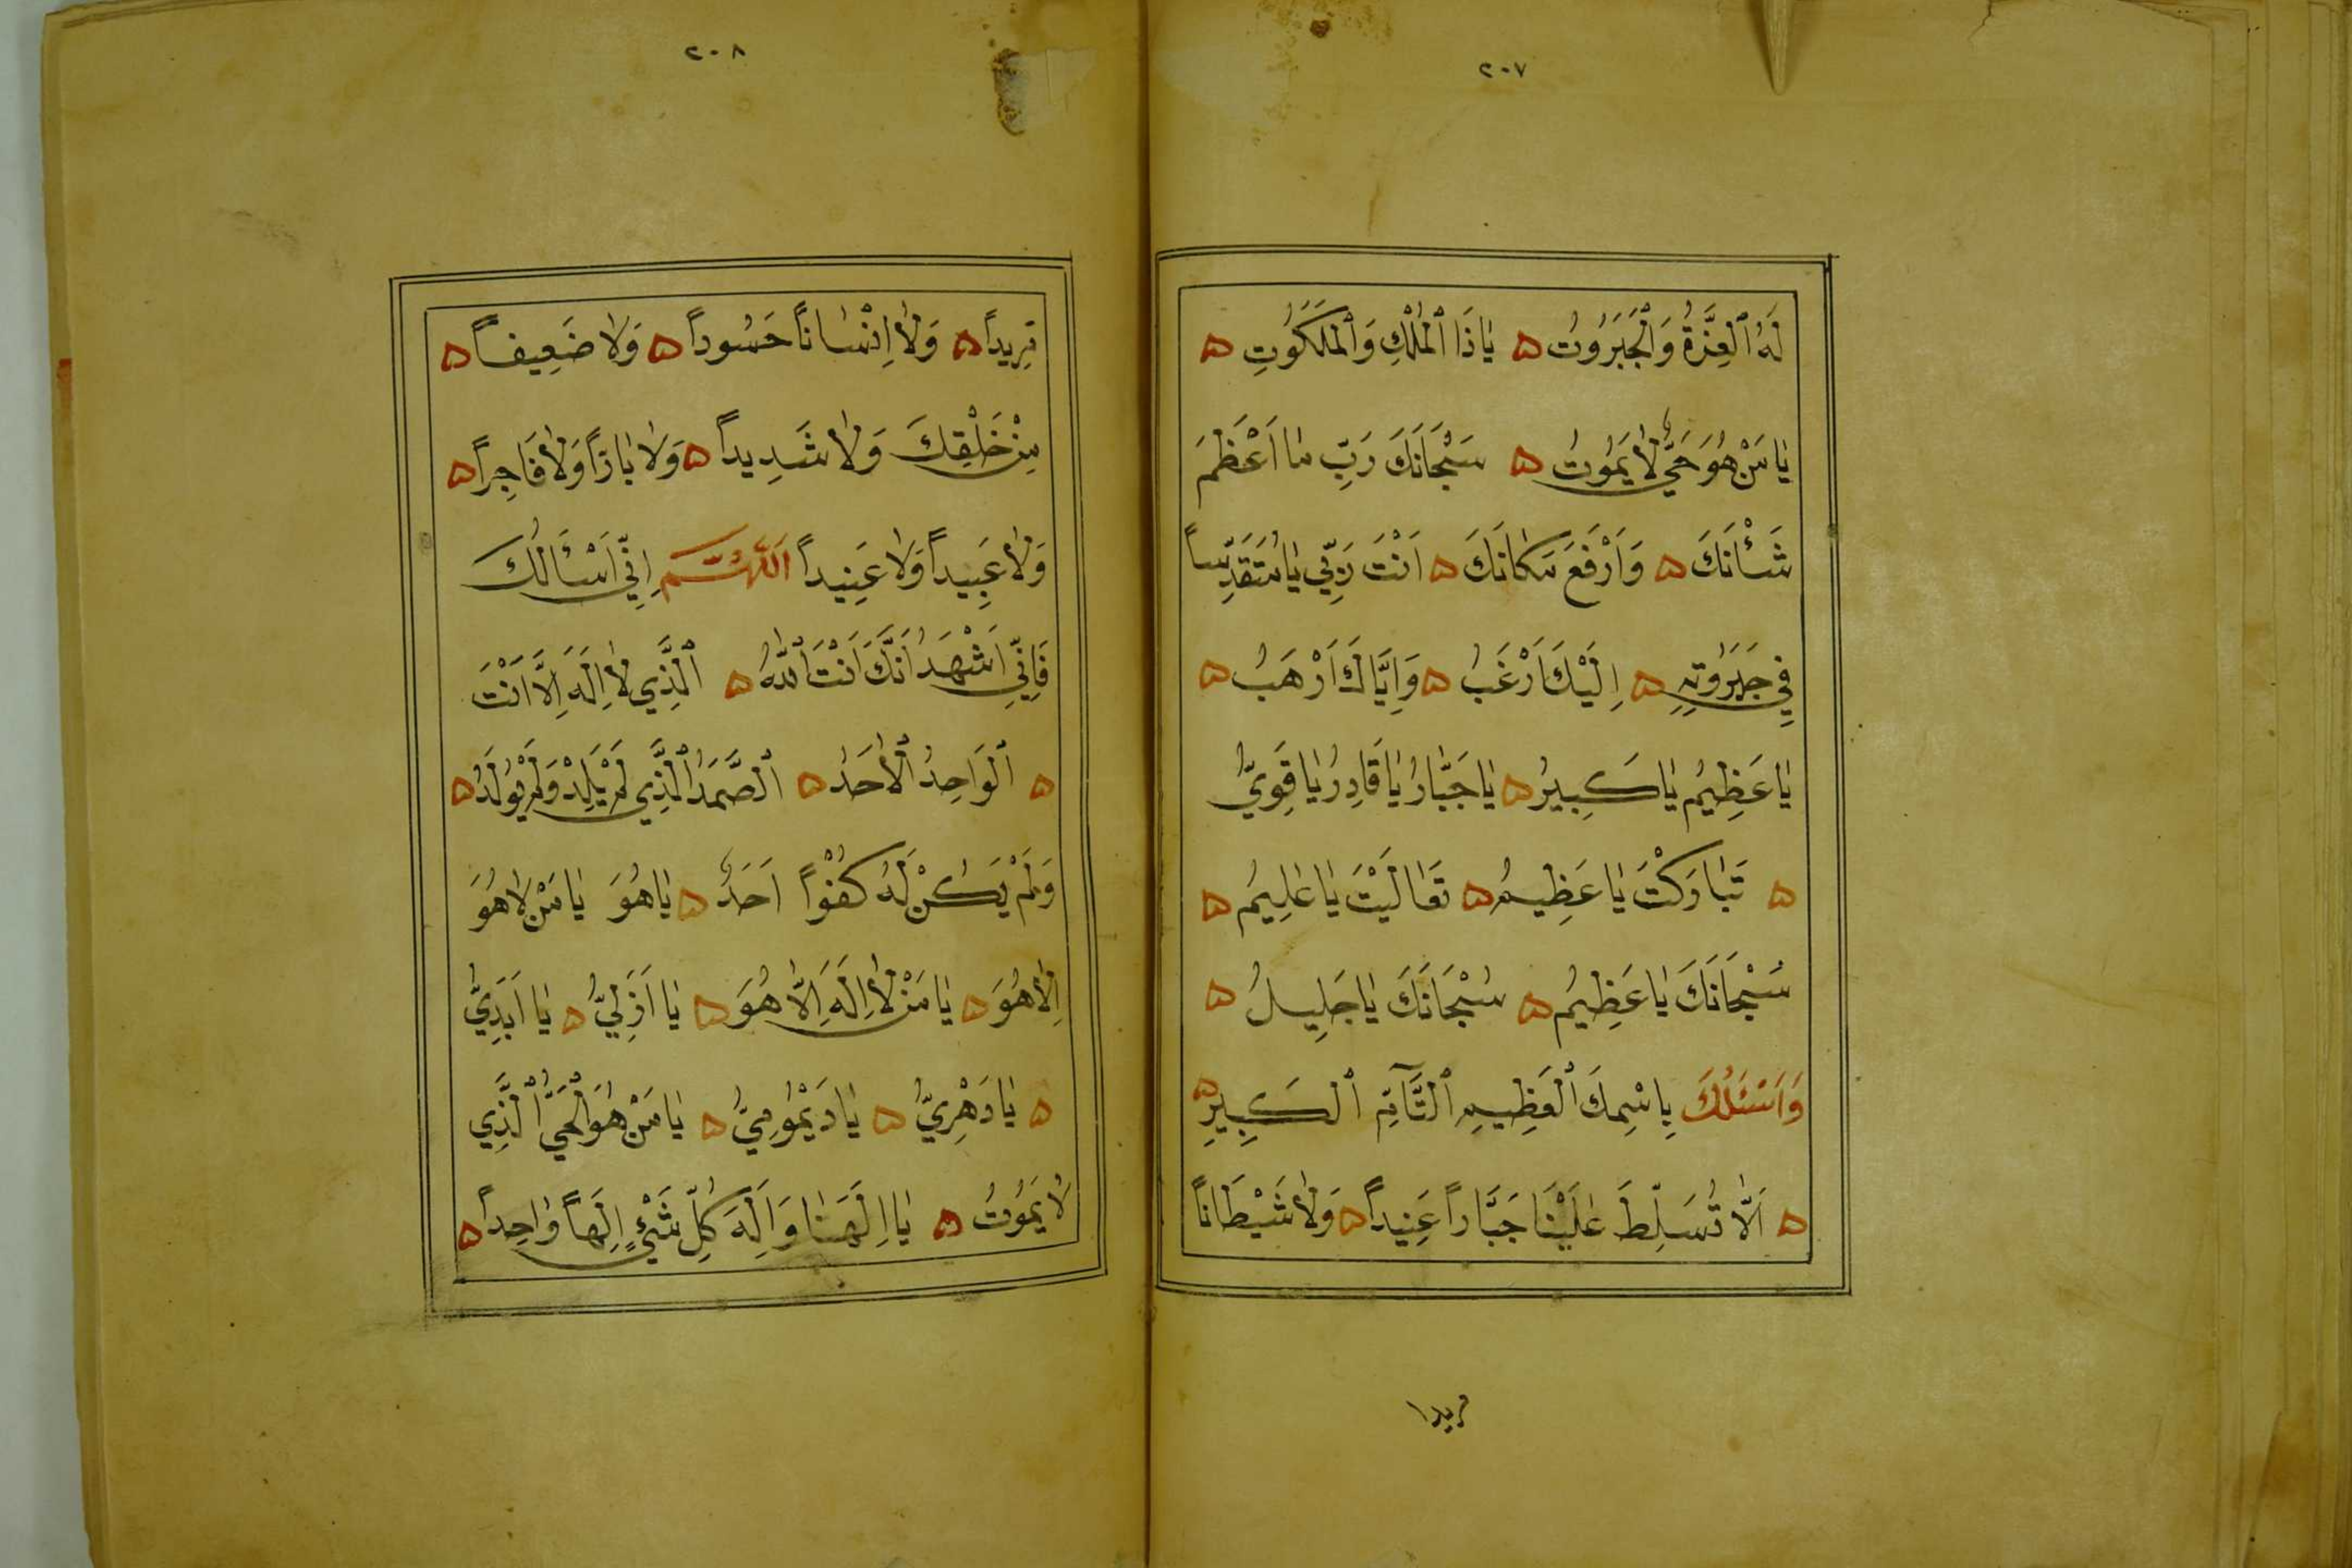 ٢٠٧
لَهُ ٱلْعِزَّةُ وَٱلْجَبَرُوتُ ه يَاذَا ٱلْمُلْكِ وَٱلْمَلَكُوتِ ه
يَا مَنْ هُوَ حَيٌّ لَا يَمُوتُ ه سُبْحَانَكَ رَبِّ مَا اَعْظَمَ
شَأْنَكَ ه وَاَرْفَعَ مَكَانَكَ ه اَنْتَ رَبِّي يَا مُتَقَدِّساً
فِي جَبَرُوتِهِ ه اِلَيْكَ اَرْغَبُ ه وَاِيَّاكَ اَرْهَبُ ه
يَا عَظِيمُ يَا كَبِيرُ ه يَا جَبَّارُ يَا قَادِرُ يَا قَوِيُّ
ه تَبَارَكْتَ يَا عَظِيمُ ه تَعَالَيْتَ يَا عَلِيمُ ه
سُبْحَانَكَ يَا عَظِيمُ ه سُبْحَانَكَ يَا جَلِيلُ ه
وَاَسْئَلُكَ بِاسْمِكَ ٱلْعَظِيمِ ٱلتَّآمِّ ٱلْكَبِيرِ ه
ه اَلَّا تُسَلِّطَ عَلَيْنَا جَبَّاراً عَنِيداً ه وَلَا شَيْطَاناً
مريدا
٢٠٨
مَرِيداً ه وَلَا اِنْسَاناً حَسُوداً ه وَلَا ضَعِيفاً ه
مِنْ خَلْقِكَ وَلَا شَدِيداً ه وَلَا بَارّاً وَلَا فَاجِراً ه
وَلَا عَبِيداً وَلَا عَنِيداً اَللّٰهُمَّ اِنِّي اَسْأَلُكَ
فَاِنِّي اَشْهَدُ اَنَّكَ اَنْتَ ٱللّٰهُ ه ٱلَّذِي لَا اِلَهَ اِلَّا اَنْتَ
ه ٱلْوَاحِدُ ٱلْأَحَدُ ه ٱلصَّمَدُ ٱلَّذِي لَمْ يَلِدْ وَلَمْ يُولَدْ ه
وَلَمْ يَكُنْ لَهُ كُفُواً اَحَدٌ ه يَا هُوَ يَا مَنْ لَا هُوَ
اِلَّا هُوَ ه يَا مَنْ لَا اِلَهَ اِلَّا هُوَ ه يَا اَزَلِيُّ ه يَا اَبَدِيُّ
ه يَا دَهْرِيُّ ه يَا دَيْمُومِيُّ ه يَا مَنْ هُوَ ٱلْحَيُّ ٱلَّذِي
لَا يَمُوتُ ه يَا اِلَهَنَا وَاِلَهَ كُلِّ شَيْءٍ اِلَهاً وَاحِداً ه